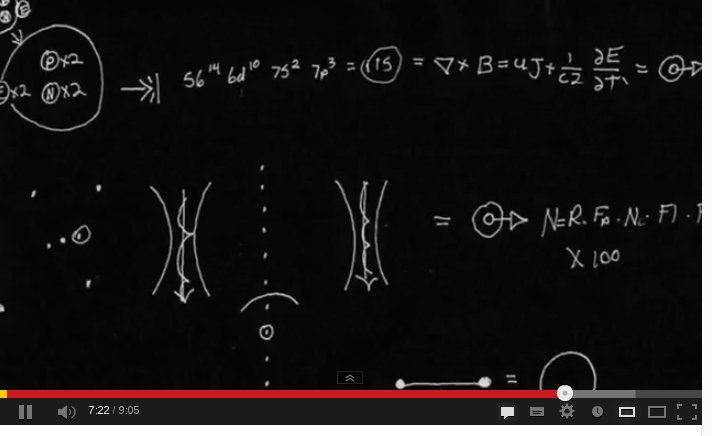 P×2
×2 N×2
56¹⁴ 6d¹⁰ 7s² 7p³ = 115 = ∇×B=uJ+ 1/c2 ∂E/∂T =
= N=R. Fp . N . Fl .
X 100
=
7:22 / 9:05